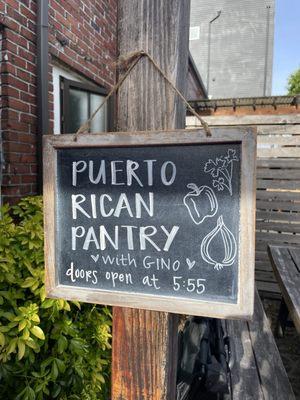 PUERTO
RICAN
PANTRY
♥ with GINO ♥
doors open at 5:55